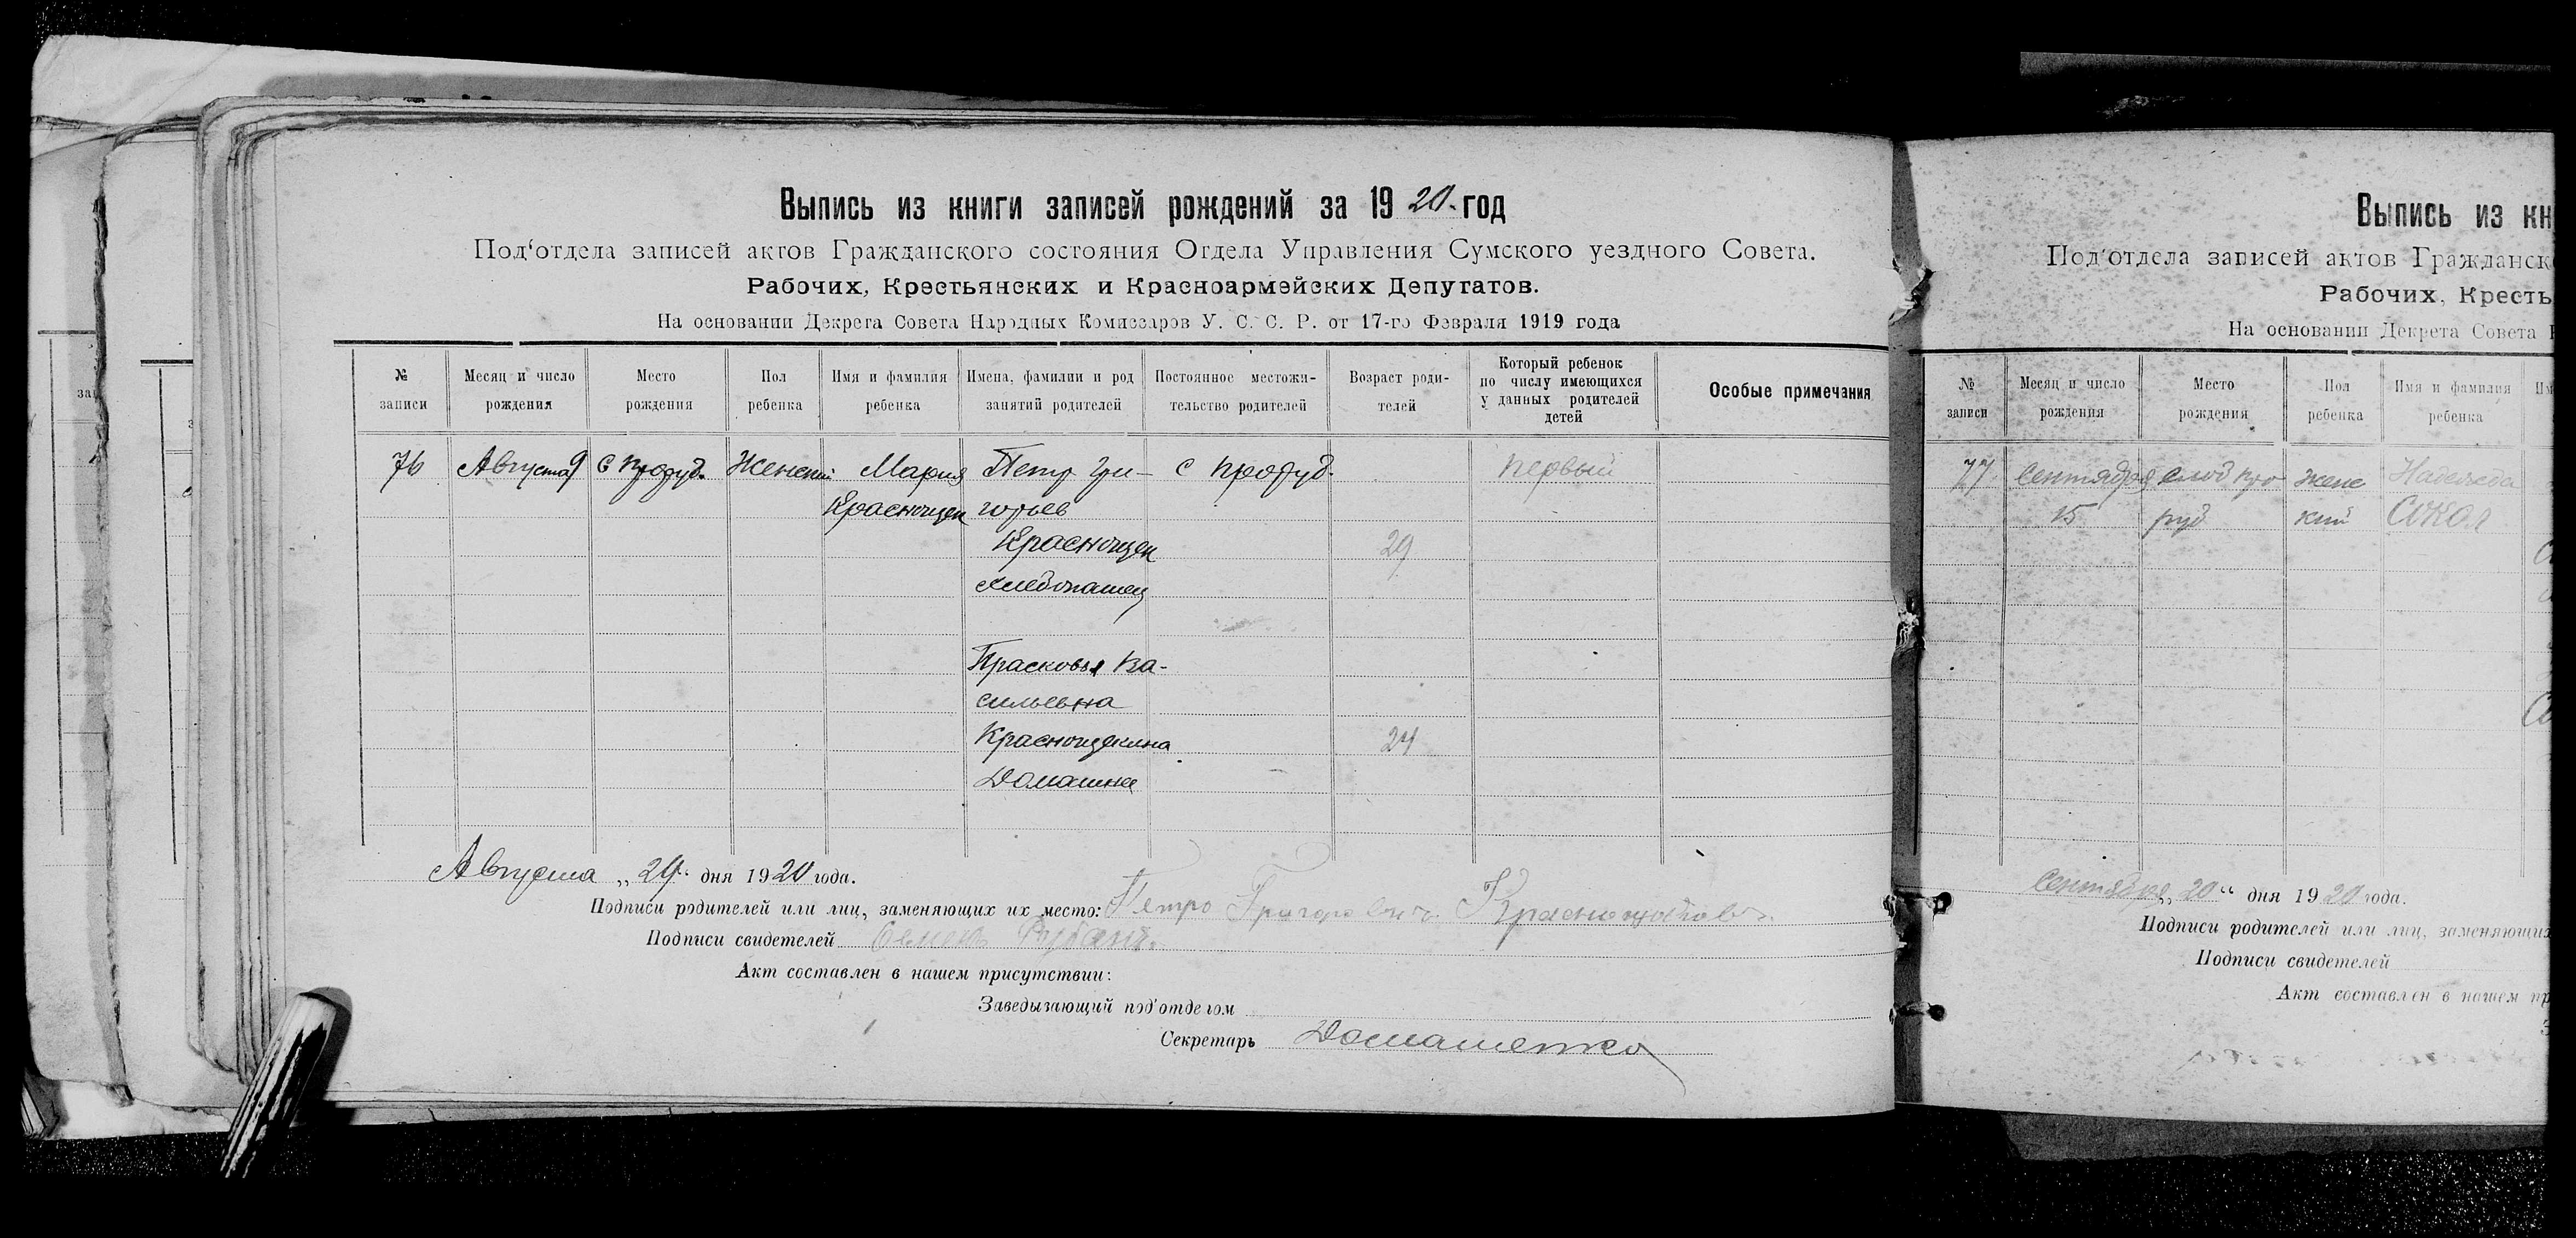 Выпись из книги записей рождений за 1920 год
Под'отдела записей актов Гражданского состояния Отдела Управления Сумского уездного Совета.
Рабочих, Крестьянских и Красноармейских Депутатов.
На основании Декрета Совета Народных Комиссаров У. С. С. Р. от 17-го Февраля 1919 года
№ записи
Месяц и число рождения
Место рождения
Пол ребенка
Имя и фамилия ребенка
Имена, фамилии и род занятий родителей
Постоянное местожительство родителей
Возраст родителей
Который ребенок по числу имеющихся у данных родителей детей
Особые примечания
76 Августа 9 с Проруб. Женский Мария Петр Гри- с Проруб. первый
Краснощек горьев
Краснощек 29
хлебопашец
Прасковья Ва-
сильевна
Краснощекина 24
Домашнее
Августа „29“ дня 1920 года.
Подписи родителей или лиц, заменяющих их место: Петро Григоревич
Подписи свидетелей
Акт составлен в нашем присутствии:
Заведывающий под'отделом
Секретарь Домашенко
Выпись из кн
Под'отдела записей актов Гражданск
Рабочих, Кресть
На основании Декрета Совета
№ записи
Месяц и число рождения
Место рождения
Пол ребенка
Имя и фамилия ребенка
77 Сентября слоб Про женс Надежда
15 руб кий Сокол
Сентября „20“ дня 1920 года.
Подписи родителей или лиц, заменяющих
Подписи свидетелей
Акт составлен в нашем пр